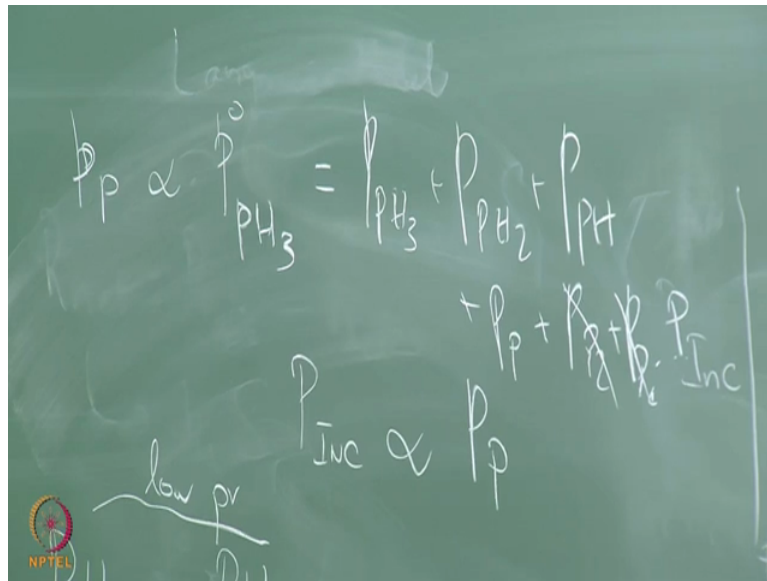 P_P ∝ P°_PH₃ = P_PH₃ + P_PH₂ + P_PH
+ P_P + P_Inc
P_Inc ∝ P_P
low pr
NPTEL